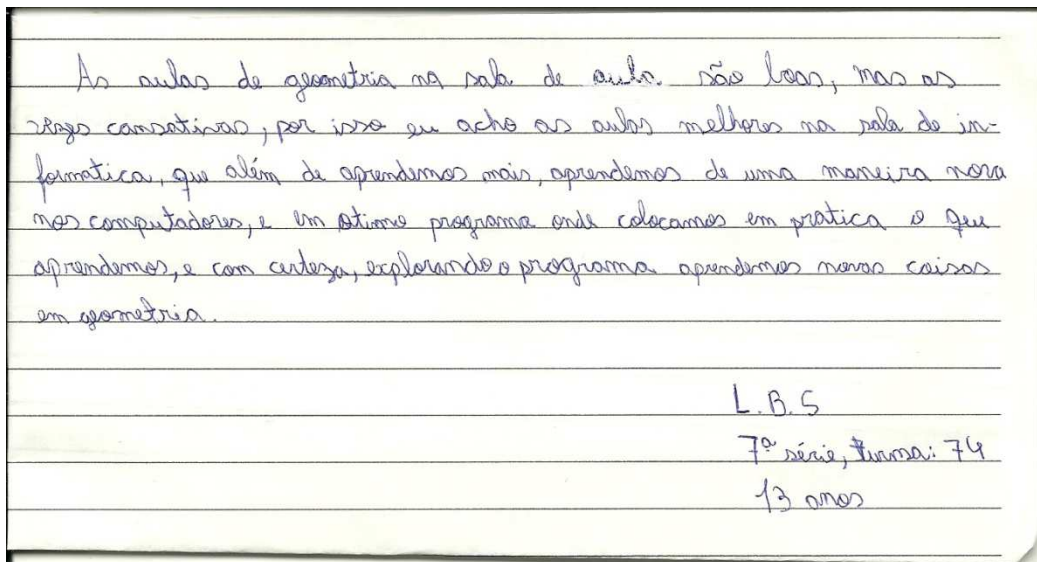 As aulas de geometria na sala de aula são boas, mas as
vezes cansativas, por isso eu acho as aulas melhores na sala de in-
formatica, que além de aprendemos mais, aprendemos de uma maneira nova
nos computadores, e um otimo programa onde colocamos em pratica o que
aprendemos, e com certeza, explorando o programa aprendemos novas coisas
em geometria.
L.B.S
7ª série, turma: 74
13 anos